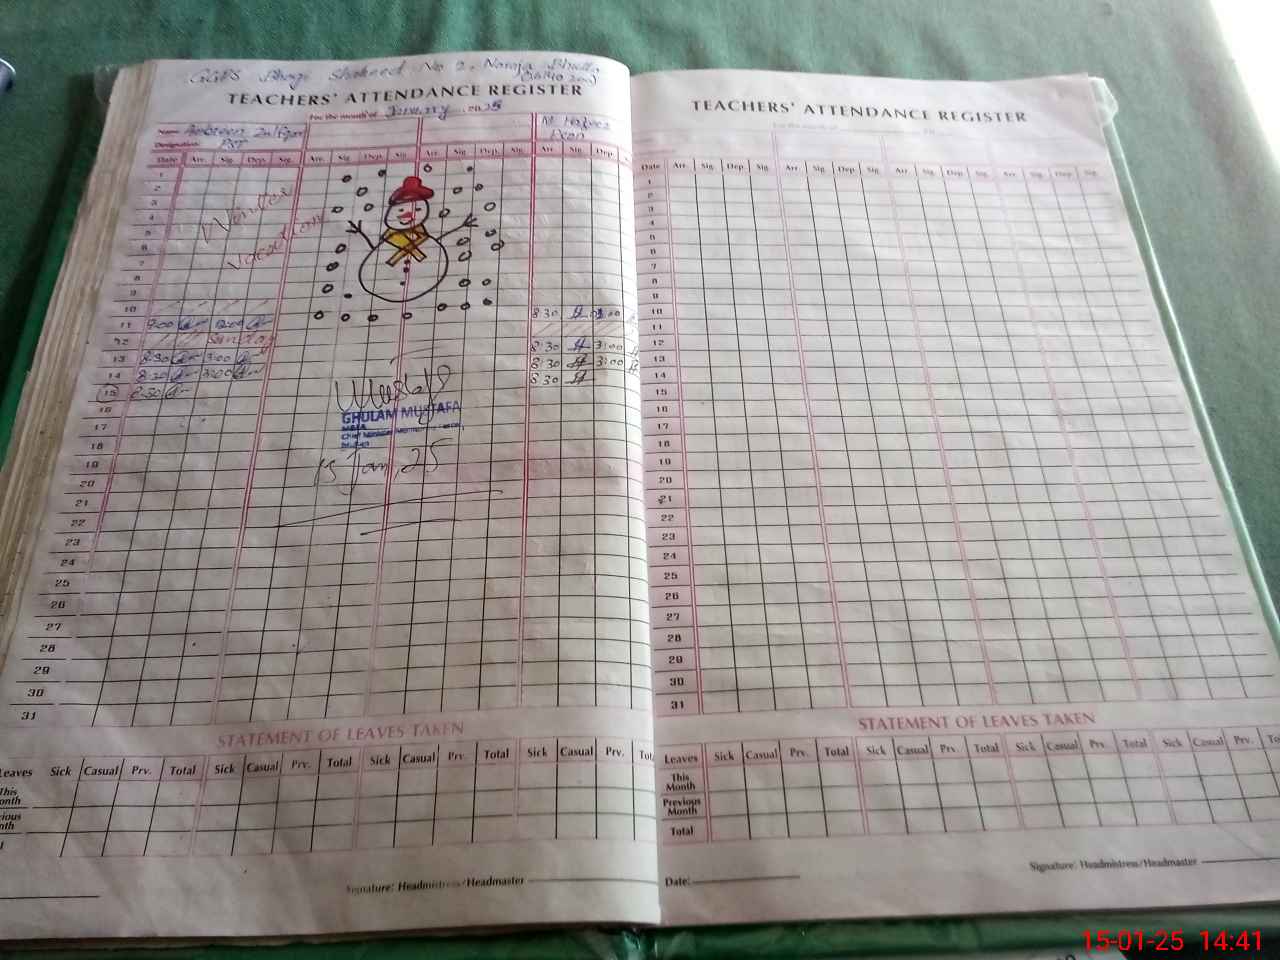 GGPS Bhogi Shaheed No 2, Noraja Bhutto
TEACHERS' ATTENDANCE REGISTER
For the month of January 2025
Name Ambreen Zulfqar
Designation: PST
M Hafeez
Peon
Date Arr. Sig. Dep. Sig. Arr. Sig. Dep. Sig. Arr. Sig. Dep. Sig. Arr. Sig. Dep.
1
2
3
4
5
6
7
8
9
10
Winter
vacation
11 9:00 8:30
12 Sunday
13 8:30 3:00 8:30 3:00
14 8:30 3:00 8:30 3:00
15 8:30 8:30
16
17
18
19
20
21
22
23
24
25
26
27
28
29
30
31
Mustafa
GHULAM MUSTAFA
15 Jan, 25
STATEMENT OF LEAVES TAKEN
Leaves Sick Casual Prv. Total Sick Casual Prv. Total Sick Casual Prv. Total Sick Casual Prv. Tot
This
onth
ious
nth
Signature: Headmistress/Headmaster
TEACHERS' ATTENDANCE REGISTER
For the month of
Date Arr. Sig. Dep. Sig. Arr. Sig. Dep. Sig. Arr. Sig. Dep. Sig. Arr. Sig. Dep. Sig.
1
2
3
4
5
6
7
8
9
10
11
12
13
14
15
16
17
18
19
20
21
22
23
24
25
26
27
28
29
30
31
STATEMENT OF LEAVES TAKEN
Leaves Sick Casual Prv. Total Sick Casual Prv. Total Sick Casual Prv. Total Sick Casual Prv. To
This
Month
Previous
Month
Total
Signature: Headmistress/Headmaster
Date:
15-01-25 14:41